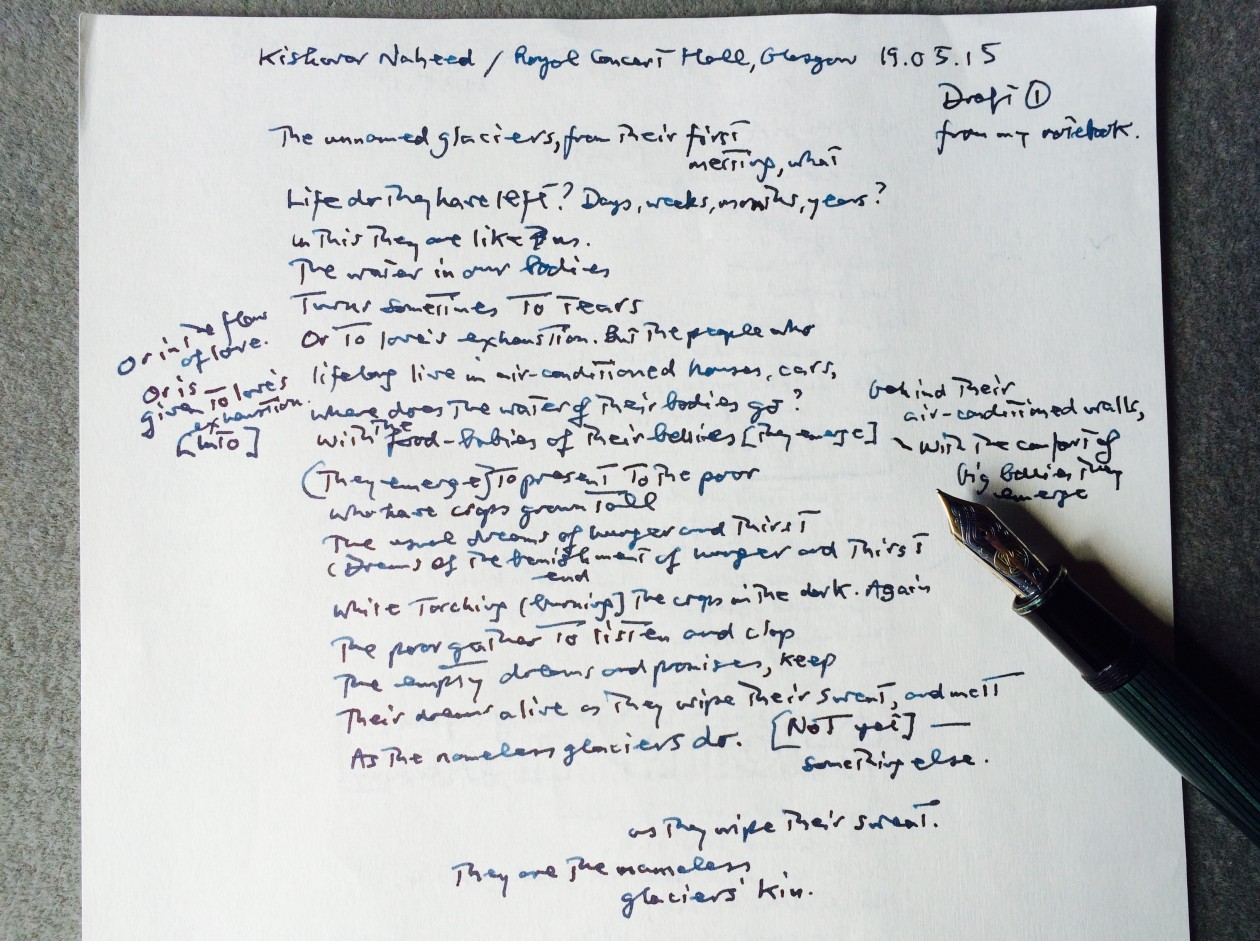 Kishwar Naheed / Royal Concert Hall, Glasgow 19.05.15
Draft ①
from my notebook.
The unnamed glaciers, from their first
melting, what
Life do they have left? Days, weeks, months, years?
in this they are like us.
The water in our bodies
Turns sometimes to tears
Or in the flow
of love.
Or to love's exhaustion. But the people who
Or is
given to love's
exhaustion.
[into]
lifelong live in air-conditioned houses, cars,
where does the water of their bodies go?
behind their
air-conditioned walls,
with the food-babies of their bellies [they emerge]
with the comfort of
big bellies they
emerge
(They emerge) to present to the poor
who have crops grown tall
The usual dreams of hunger and thirst
(Dreams of the banishment of hunger and thirst
end
while torching [burning] the crops in the dark. Again
The poor gather to listen and clap
The empty dreams and promises, keep
Their dreams alive as they wipe their sweat, and melt
As the nameless glaciers do. [Not yet] —
something else.
as they wipe their sweat.
They are the nameless
glaciers' kin.